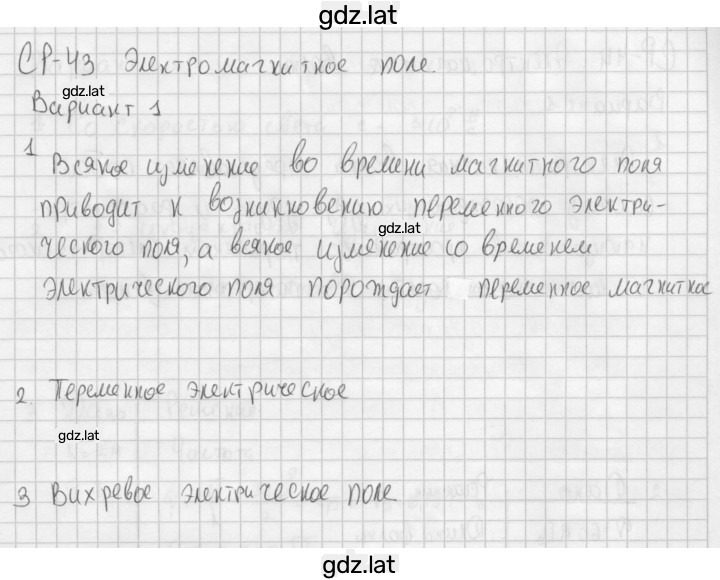 gdz.lat
СР-43 Электромагнитное поле.
gdz.lat
Вариант 1
1 Всякое изменение во времени магнитного поля
приводит к возникновению переменного электри-
gdz.lat
ческого поля, а всякое изменение со временем
электрического поля порождает переменное магнитное
2. Переменное электрическое
gdz.lat
3 Вихревое электрическое поле
gdz.lat